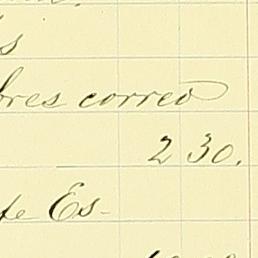 bres correo
230.
fe Es-